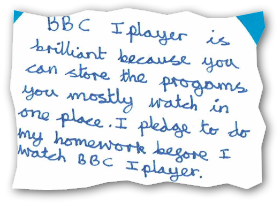 BBC Iplayer is
brilliant because you
can store the programs
you mostly watch in
one place. I pledge to do
my homework before I
watch BBC Iplayer.